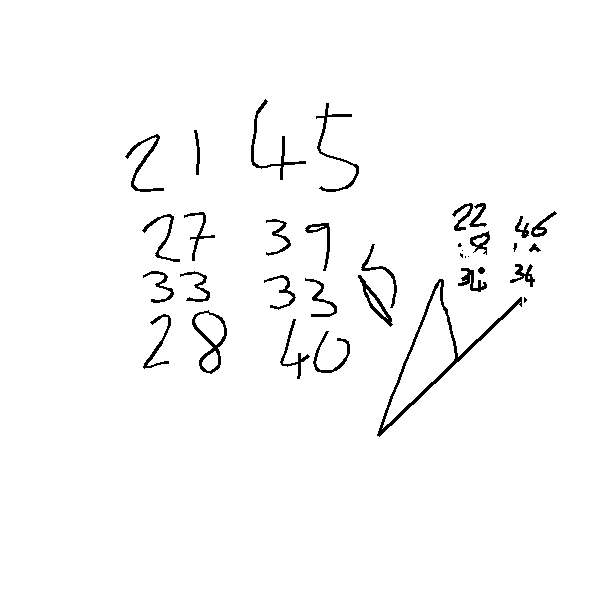 21 45
27 39
33 33
28 40
22 46
34 34